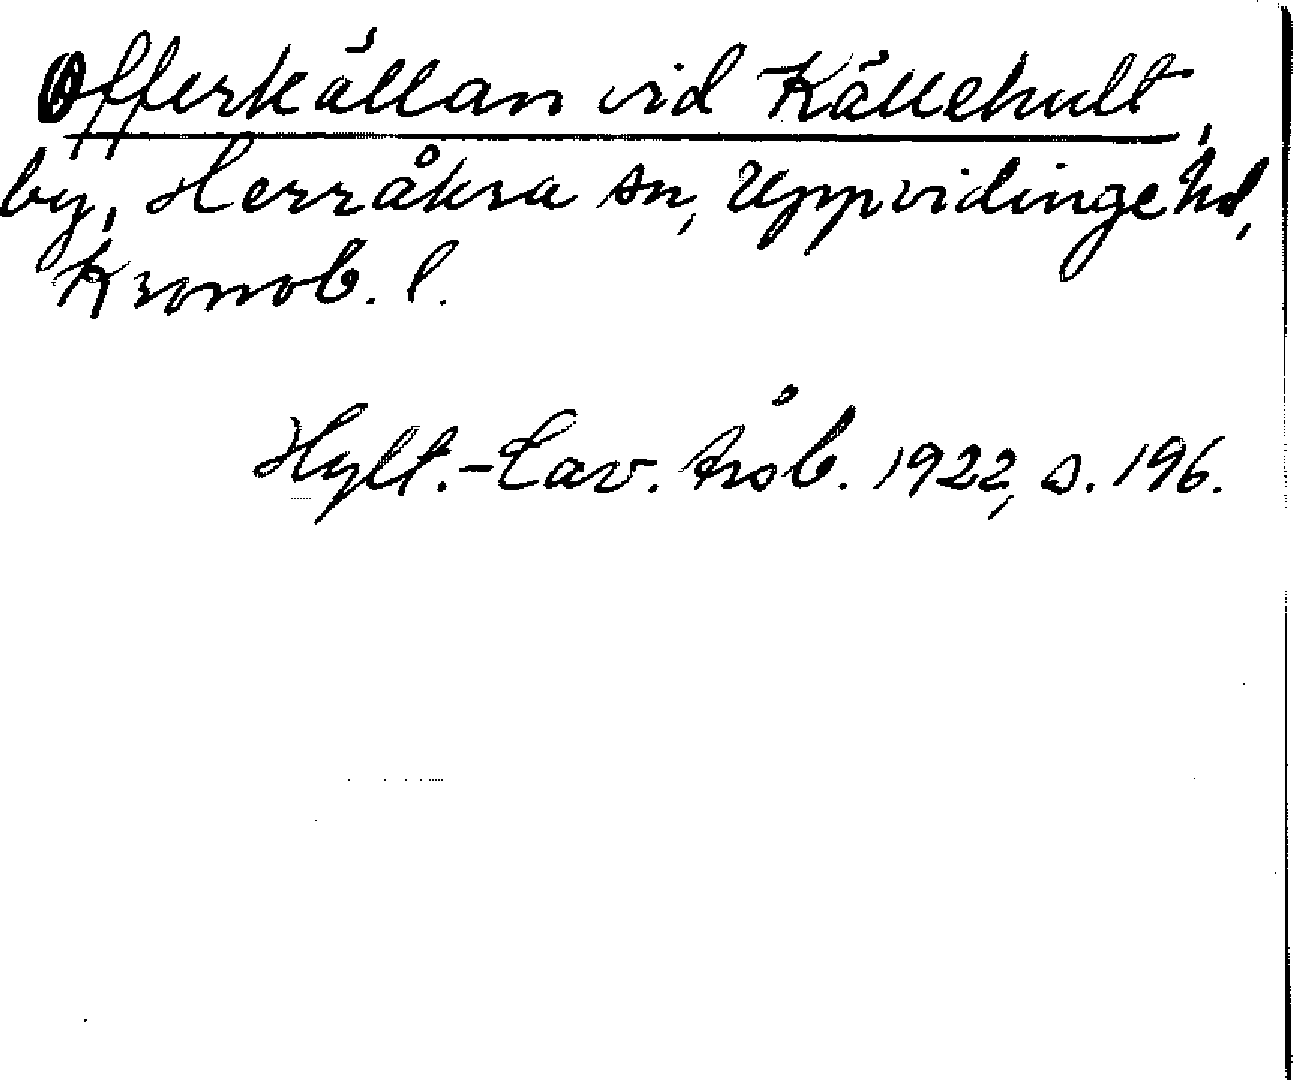 Offerkällan vid Källehult,
by, Herråkra sn, Uppvidinge hd,
Kronob. l.
Hylt.-Cav. årsb. 1922, s. 196.